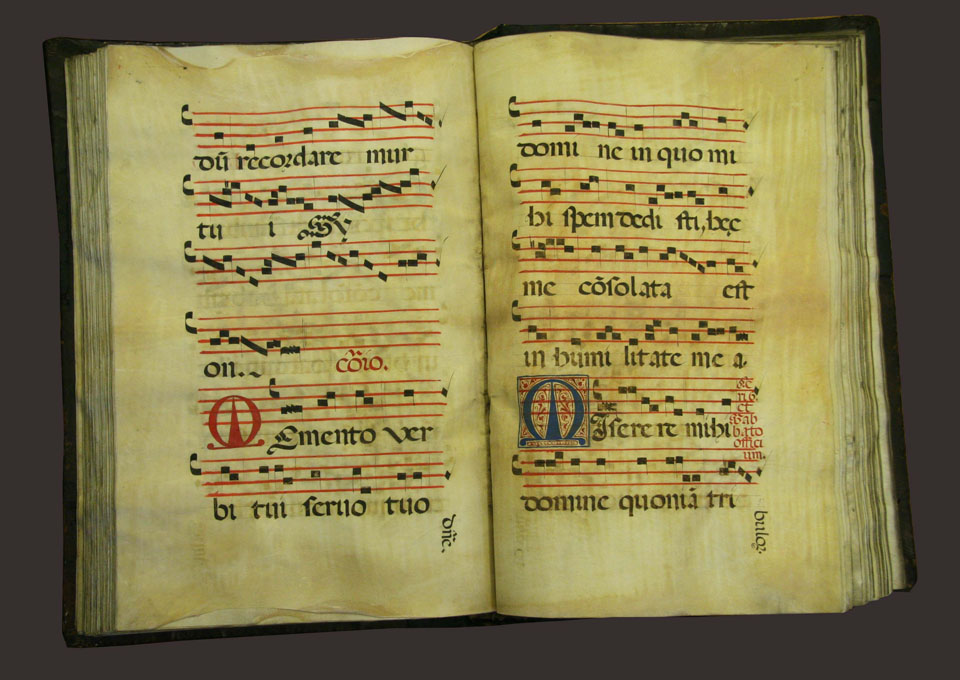 dũ recordare mur
tu i
on. cõio.
MEmento ver
bi tui seruo tuo
dñe.
domi ne in quo mi
hi spem dedi sti, hęc
me cõsolata est
in humi litate me a.
MIsere re mihi
Sab
bato
offici
um.
domine quoniã tri
bulor